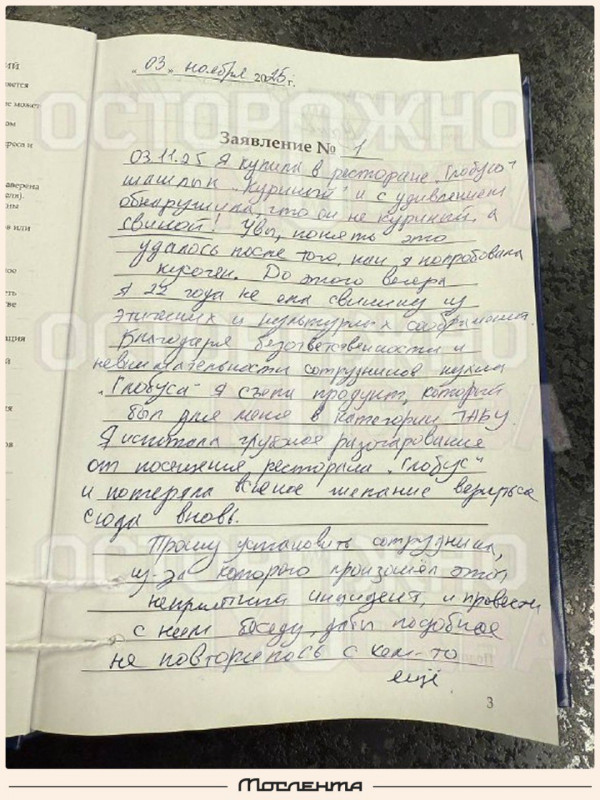 „03" ноября 2025 г.
Заявление № 1
03.11.25 Я купила в ресторане „Глобус"
шашлык „Куриный" и с удивлением
обнаружила, что он не куриный, а
свиной! Увы, понять это
удалось после того, как я попробовала
кусочек. До этого вечера
я 22 года не ела свинину из
этических и культурных соображений.
Благодаря безответственности и
невнимательности сотрудников кухни
„Глобуса" я съела продукт, который
был для меня в категории ТАБУ.
Я испытала глубокое разочарование
от посещения ресторана „Глобус"
и потеряла всякое желание вернуться
сюда вновь.
Прошу установить сотрудника,
из-за которого произошёл этот
неприятный инцидент, и провести
с ним беседу, дабы подобное
не повторилось с кем-то
ещё
3
ОСТОРОЖНО
МОСКВА
МОСЛЕНТА